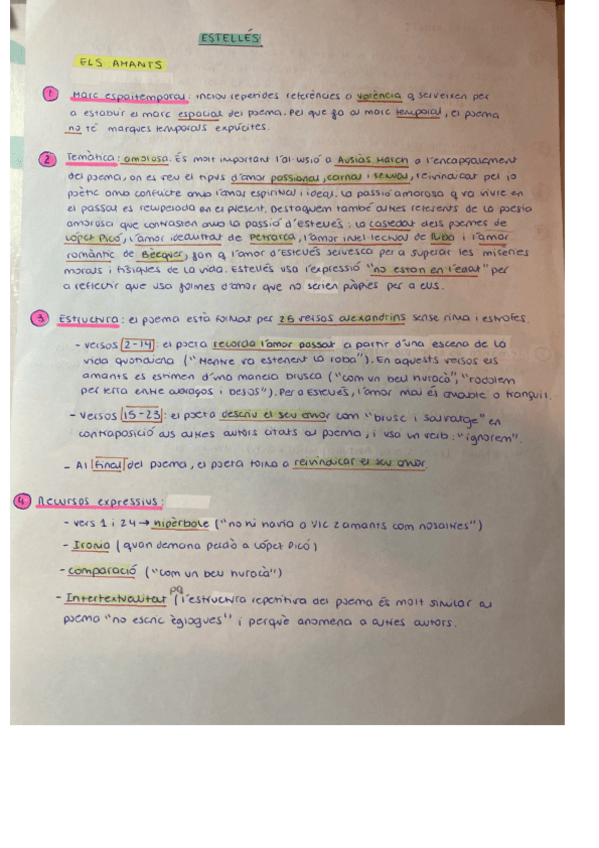 ESTELLÉS
ELS AMANTS
1 Marc espaitemporal: inclou repetides referències a València q serveixen per
a establir el marc espacial del poema. Pel que fa al marc temporal, el poema
no té marques temporals explícites.
2 Temàtica: amorosa. És molt important l'al·lusió a Ausiàs March a l'encapçalament
del poema, on es reu el tipus d'amor passional, carnal i sexual, reivindicat pel jo
poètic amb conflicte amb l'amor espiritual i ideal. La passió amorosa q va viure en
el passat es recuperada en el present. Destaquem també altres referents de la poesia
amorosa que contrasten amb la passió d'Estellés: la casedat dels poemes de
López Picó, l'amor idealitzat de Petrarca, l'amor intel·lectual de Riba i l'amor
romàntic de Bécquer, fan q l'amor d'Estellés serveixca per a superar les misèries
morals i físiques de la vida. Estellés usa l'expressió "no estan en l'edat" per
a reflectir que usa formes d'amor que no serien pròpies per a ells.
3 Estructura: el poema està format per 26 versos alexandrins sense rima i estrofes.
- Versos 2-14: el poeta recorda l'amor passat a partir d'una escena de la
vida quotidiana ("Mentre va estenent la roba"). En aquests versos els
amants es estimen d'una manera brusca ("com un bell huracà", "rodolem
per terra entre abraços i besos"). Per a Estellés, l'amor mai és amable o tranquil.
- Versos 15-23: el poeta descriu el seu amor com "brusc i salvatge" en
contraposició als altres autors citats al poema, i usa un verb: "ignorem".
- Al final del poema, el poeta torna a reivindicar el seu amor.
4 Recursos expressius:
- vers 1 i 24 → hipèrbole ("no hi havia a VLC 2 amants com nosaltres")
- Ironia (quan demana perdó a López Picó)
- comparació ("com un bell huracà")
- Intertextualitat pq (l'estructura repetitiva del poema és molt similar al
poema "no escric èglogues" i perquè anomena a altres autors.